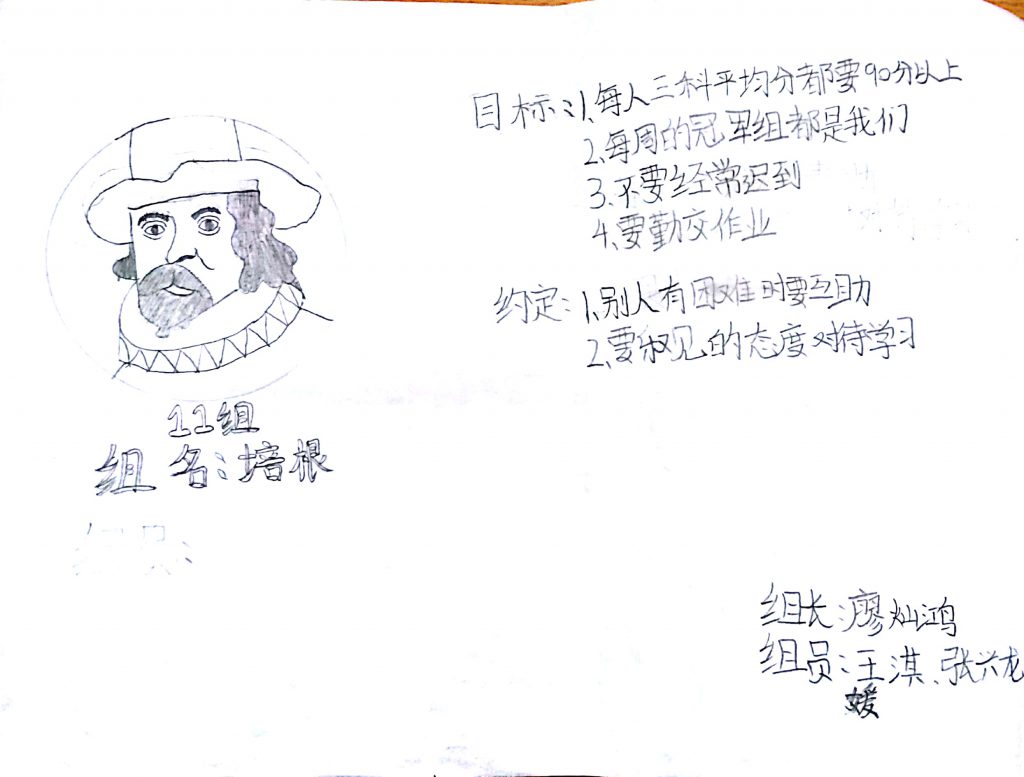 目标:1.每人三科平均分都要90分以上
2.每周的冠军组都是我们
3.不要经常迟到
4.要勤交作业
约定:1.别人有困难时要互助
2.要积见的态度对待学习
11组
组名:培根
组员:
组长:廖灿鸿
组员:王淇、张兴龙
媛